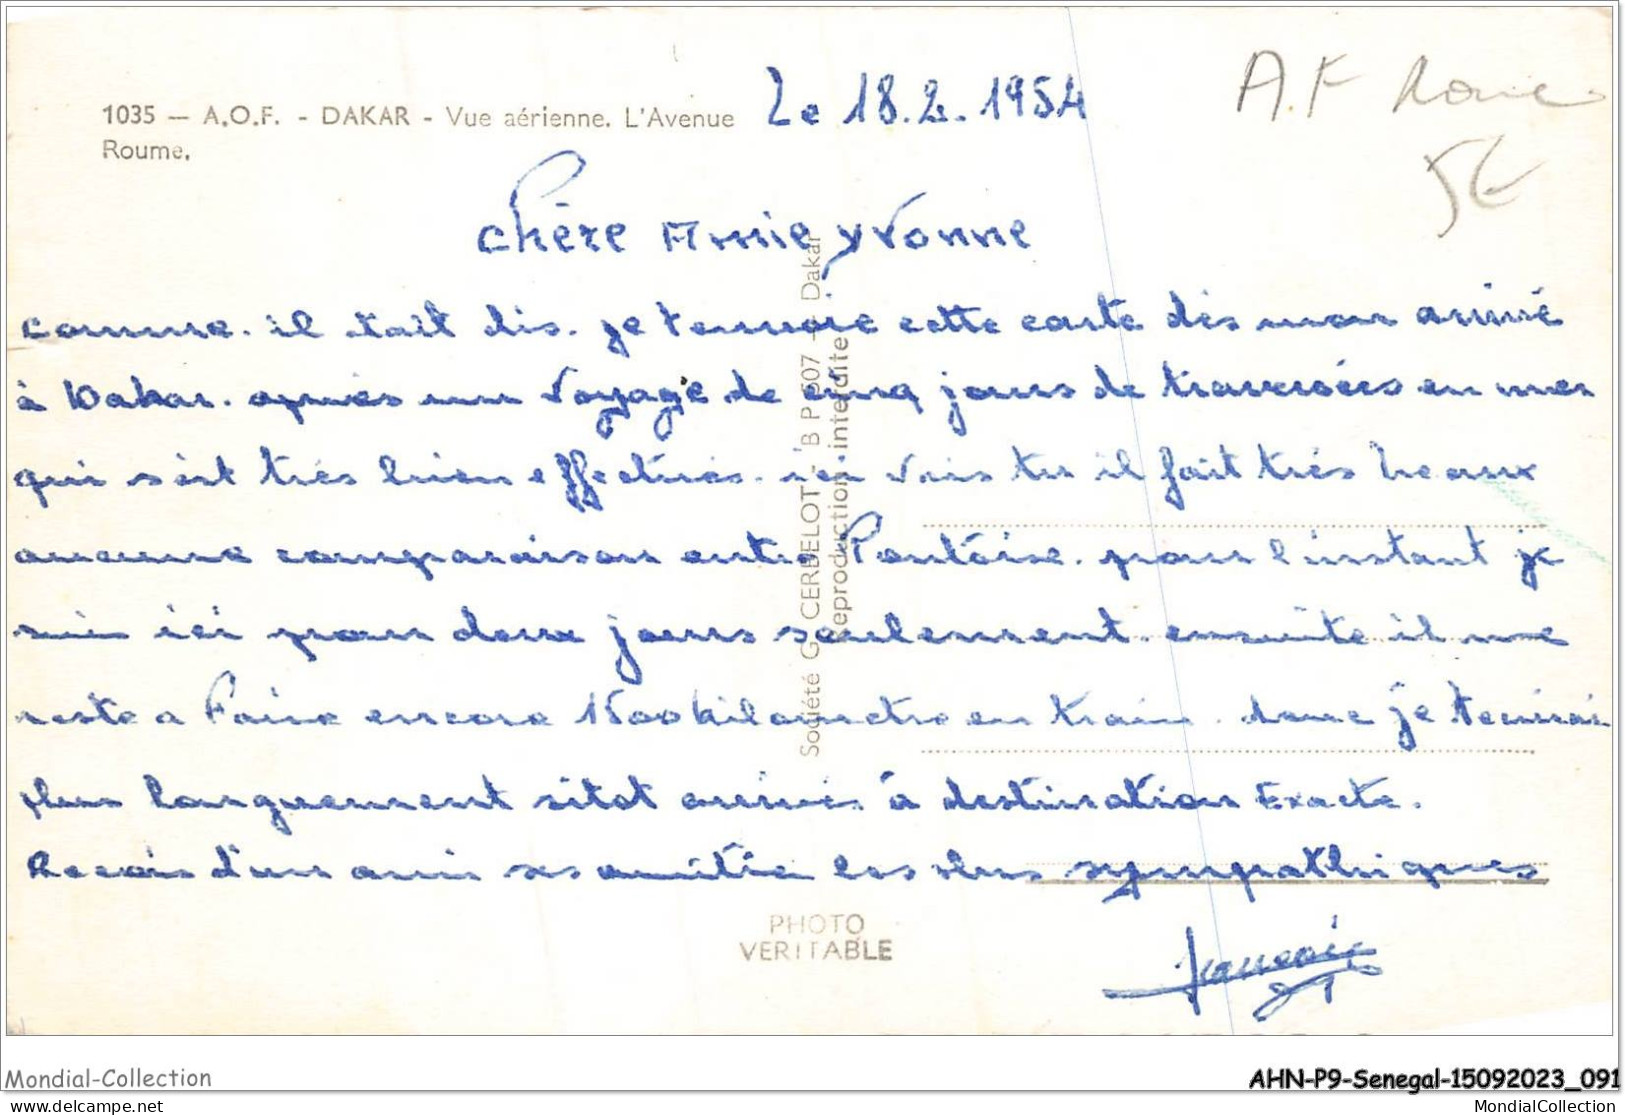 1035 — A.O.F. - DAKAR - Vue aérienne. L'Avenue
Roume.
Le 18.2.1954
A.F
5€
Chère Amie yvonne
comme. il tait dis. je t'envoie cette carte dés mon arrivé
à Dakar. aprés un voyage de cinq jours de traversées en mer
qui s'ést trés bien effectués. ici vois tu il fait trés beaux
aucune comparaison entre Pontoise. pour l'instant je
suis ici pour deux jours seulement. ensuite il me
reste a faire encore 1500 kilometre en train. donc je t'ecrirai
plus longuement sitot arrivés à destination Exacte.
Recois d'un ami ses amitie les plus sympathiques
francois
Société G. CERBELOT - B P 607 - Dakar
Reproduction interdite
PHOTO
VERITABLE
Mondial-Collection
AHN-P9-Senegal-15092023_091
delcampe.net
MondialCollection